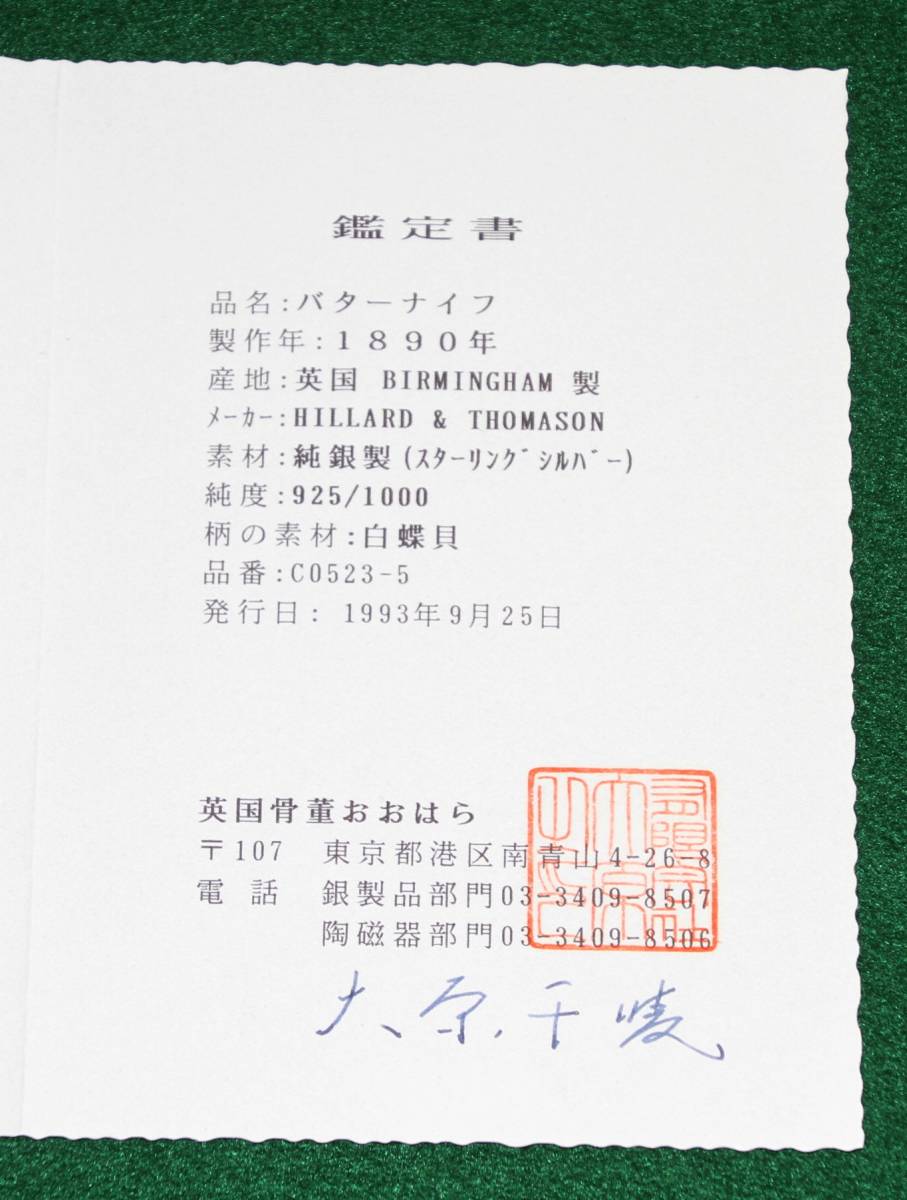 鑑定書
品名:バターナイフ
製作年:1890年
産地:英国 BIRMINGHAM 製
ﾒｰｶｰ:HILLARD & THOMASON
素材:純銀製(ｽﾀｰﾘﾝｸﾞｼﾙﾊﾞｰ)
純度:925/1000
柄の素材:白蝶貝
品番:C0523-5
発行日: 1993年9月25日
英国骨董おおはら
〒107 東京都港区南青山4-26-8
電話 銀製品部門03-3409-8507
陶磁器部門03-3409-8506
大原千